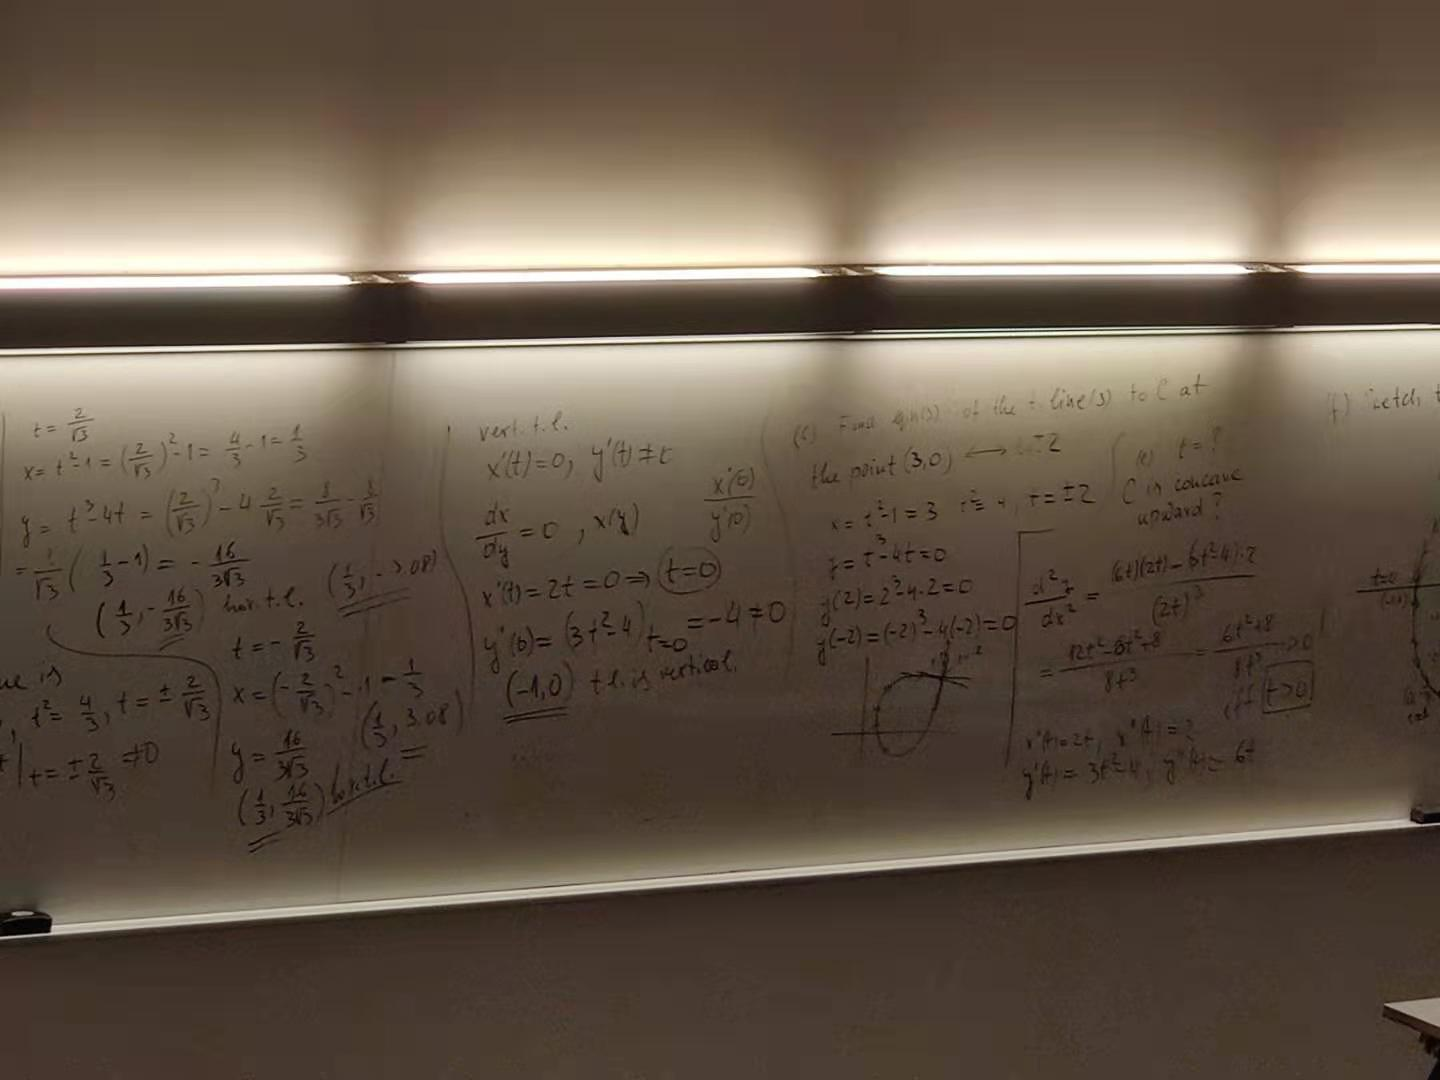 t = 2/√3
x = t² - 1 = (2/√3)² - 1 = 4/3 - 1 = 1/3
y = t³ - 4t = (2/√3)³ - 4 2/√3 = 8/3√3 - 8/√3
= 1/√3 ( 1/3 - 1) = - 16/3√3
(1/3, - 16/3√3) hor. t.l. (1/3, -3.08)
t = - 2/√3
x = (- 2/√3)² - 1 = 1/3
(1/3, 3.08)
y = 16/3√3
(1/3, 16/3√3) hor. t.l.
is
, t² = 4/3, t = ± 2/√3
| t = ± 2/√3 ≠ 0
vert. t.l.
x'(t) = 0, y'(t) ≠ 0
dx/dy = 0, x(y)
x'(0)/y'(0)
x'(t) = 2t = 0 ⇒ t = 0
y'(0) = (3t² - 4) t=0 = -4 ≠ 0
(-1,0) t.l. is vertical.
(c) Find eqn(s) of the t. line(s) to C at
the point (3,0) ⟷ t = ±2
x = t² - 1 = 3 t² = 4, t = ±2
y = t³ - 4t = 0
y(2) = 2³ - 4·2 = 0
y(-2) = (-2)³ - 4(-2) = 0
(e) t = ?
C is concave
upward?
d²y/dx² = (6t)(2t) - (3t² - 4)·2 / (2t)³
= 12t² - 6t² + 8 / 8t³ = 6t² + 8 / 8t³ > 0
iff t > 0
x'(t) = 2t, x''(t) = 2
y'(t) = 3t² - 4, y''(t) = 6t
(f) Sketch
t=0